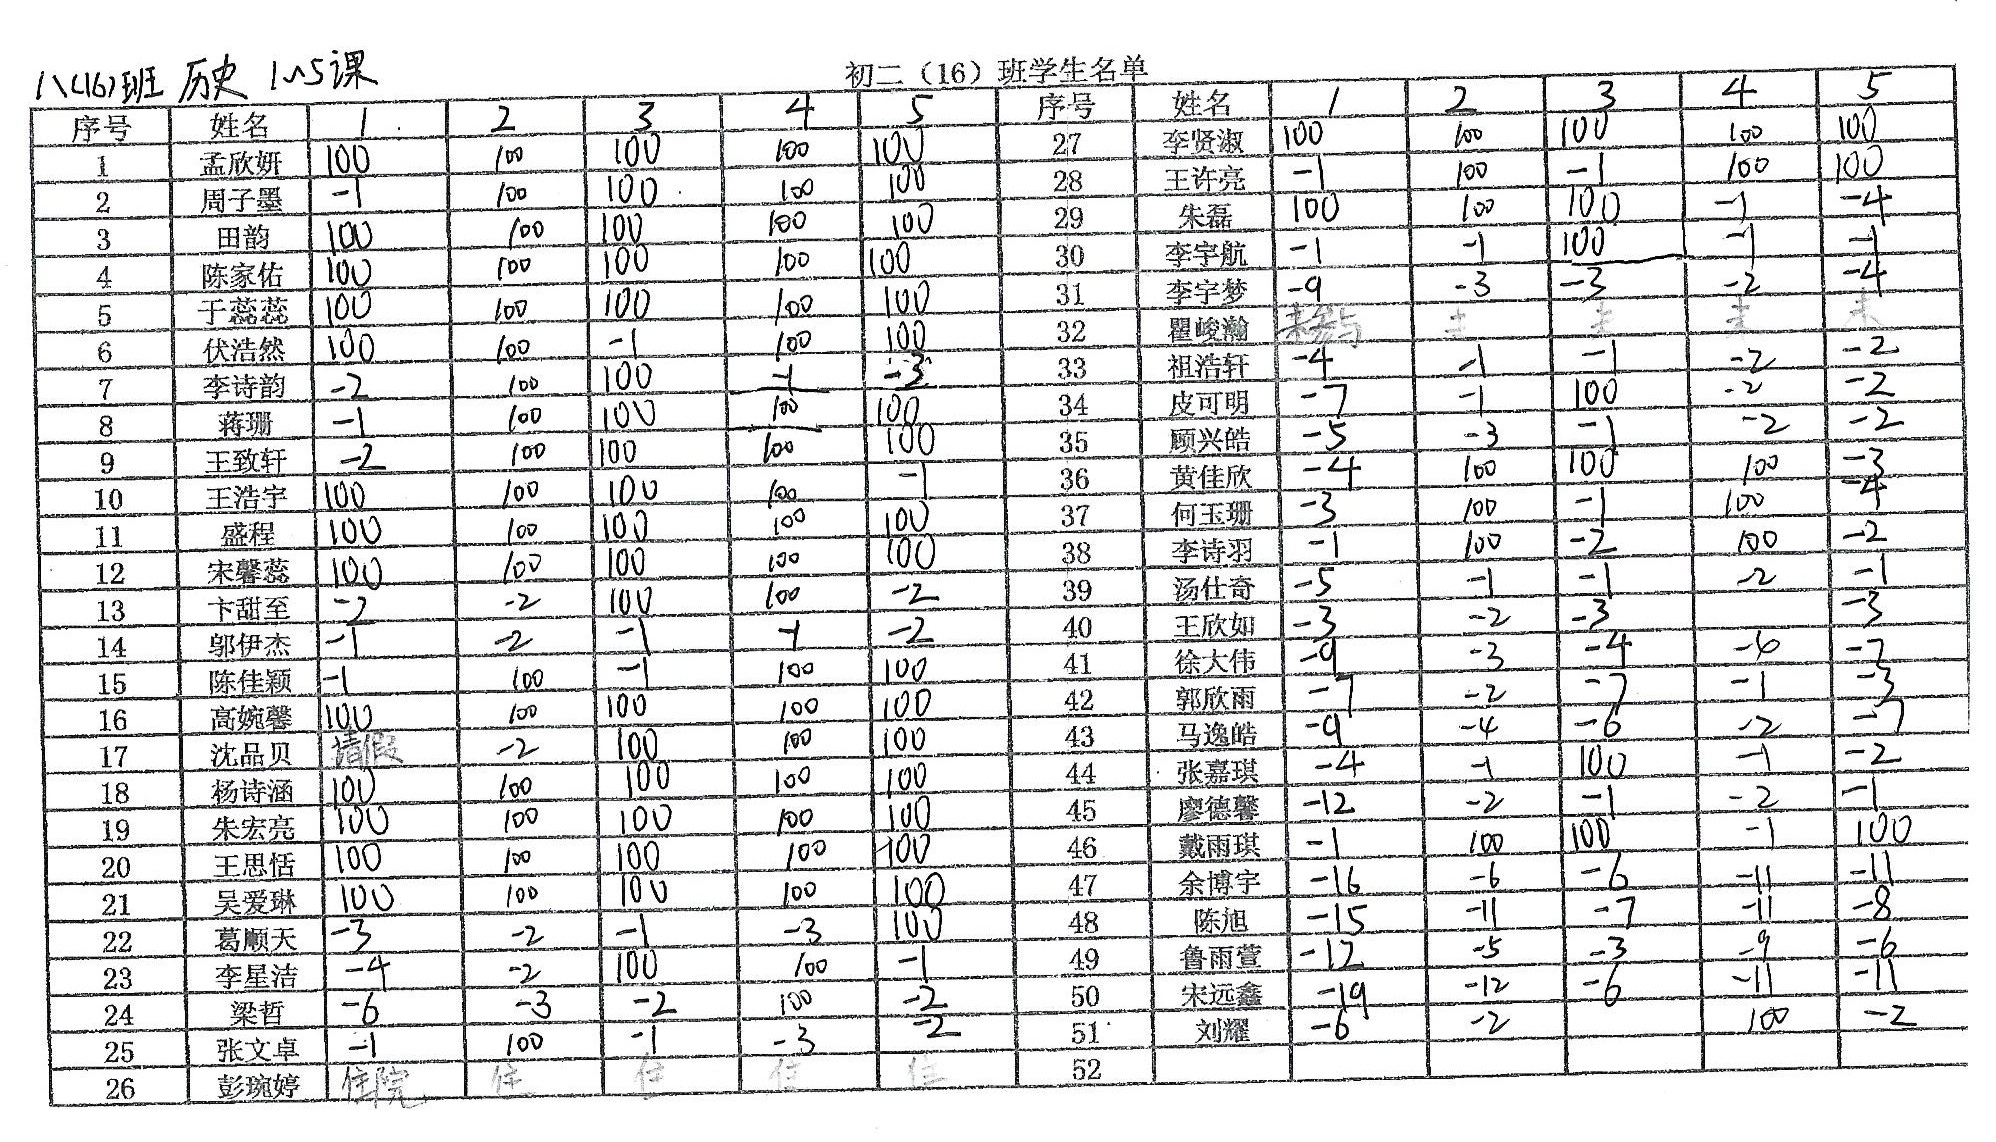 八(16)班 历史 1~5课
初二（16）班学生名单
序号 姓名 1 2 3 4 5 序号 姓名 1 2 3 4 5
1 孟欣妍 100 100 100 100 100 27 李贤淑 100 100 100 100 100
2 周子墨 -1 100 100 100 100 28 王许亮 -1 100 -1 100 100
3 田韵 100 100 100 100 100 29 朱磊 100 100 100 -1 -4
4 陈家佑 100 100 100 100 100 30 李宇航 -1 -1 100 -1 -1
5 于蕊蕊 100 100 100 100 100 31 李宇梦 -9 -3 -3 -2 -4
6 伏浩然 100 100 -1 100 100 32 瞿峻瀚 未参与 未 未 未 未
7 李诗韵 -2 100 100 -1 -3 33 祖浩轩 -4 -1 -1 -2 -2
8 蒋珊 -1 100 100 100 100 34 皮可明 -7 -1 100 -2 -2
9 王致轩 -2 100 100 100 100 35 顾兴皓 -5 -3 -1 -2 -2
10 王浩宇 100 100 100 100 -1 36 黄佳欣 -4 100 100 100 -3
11 盛程 100 100 100 100 100 37 何玉珊 -3 100 -1 100 -4
12 宋馨蕊 100 100 100 100 100 38 李诗羽 -1 100 -2 100 -2
13 卞甜至 -2 -2 100 100 -2 39 汤仕奇 -5 -1 -1 -2 -1
14 邬伊杰 -1 -2 -1 -1 -2 40 王欣如 -3 -2 -3 -3
15 陈佳颖 -1 100 -1 100 100 41 徐大伟 -9 -3 -4 -6 -7
16 高婉馨 100 100 100 100 100 42 郭欣雨 -7 -2 -7 -1 -3
17 沈品贝 请假 -2 100 100 100 43 马逸皓 -9 -4 -6 -2 -7
18 杨诗涵 100 100 100 100 100 44 张嘉琪 -4 -1 100 -1 -2
19 朱宏亮 100 100 100 100 100 45 廖德馨 -12 -2 -1 -2 -1
20 王思恬 100 100 100 100 100 46 戴雨琪 -1 100 100 -1 100
21 吴爱琳 100 100 100 100 100 47 余博宇 -16 -6 -6 -11 -11
22 葛顺天 -3 -2 -1 -3 100 48 陈旭 -15 -11 -7 -11 -8
23 李星洁 -4 -2 100 100 -1 49 鲁雨萱 -12 -5 -3 -9 -6
24 梁哲 -6 -3 -2 100 -2 50 宋远鑫 -19 -12 -6 -11 -11
25 张文卓 -1 100 -1 -3 -2 51 刘耀 -6 -2 100 -2
26 彭琬婷 住院 住 住 住 住 52